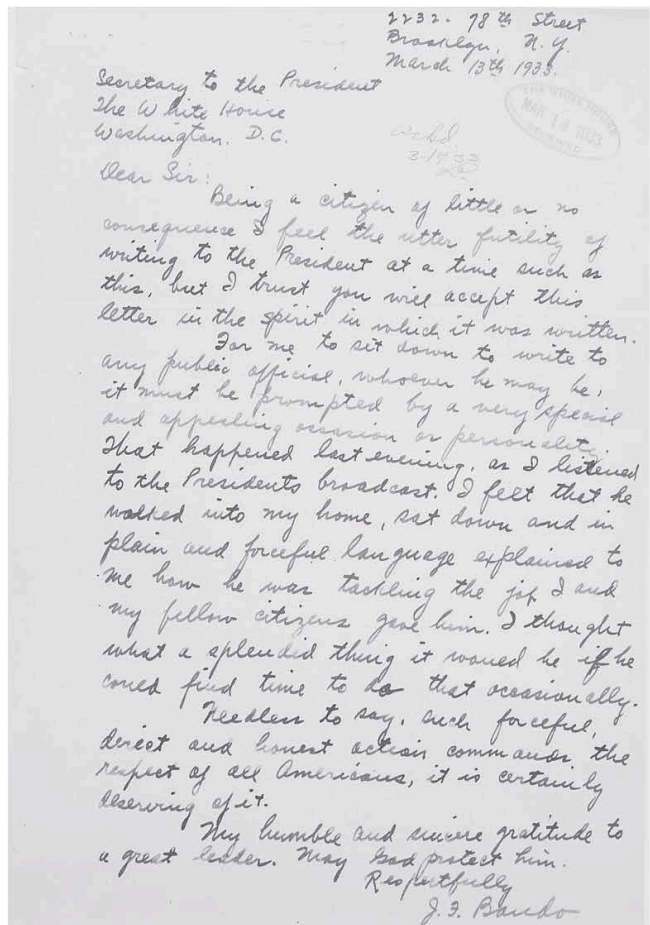 2232. 78th Street
Brooklyn, N.Y.
March 13th 1933.
Secretary to the President
The White House
Washington. D.C.
THE WHITE HOUSE
MAR 14 1933
RECEIVED
ackd
3-19-33
Dear Sir:
Being a citizen of little or no
consequence I feel the utter futility of
writing to the President at a time such as
this, but I trust you will accept this
letter in the spirit in which it was written.
For me to sit down to write to
any public official, whoever he may be,
it must be prompted by a very special
and appealing occasion or personality.
That happened last evening, as I listened
to the Presidents broadcast. I felt that he
walked into my home, sat down and in
plain and forceful language explained to
me how he was tackling the job I and
my fellow citizens gave him. I thought
what a splendid thing it would be if he
could find time to do that occasionally.
Needless to say, such forceful,
direct and honest action commands the
respect of all Americans, it is certainly
deserving of it.
My humble and sincere gratitude to
a great leader. May God protect him.
Respectfully
J. F. Bando